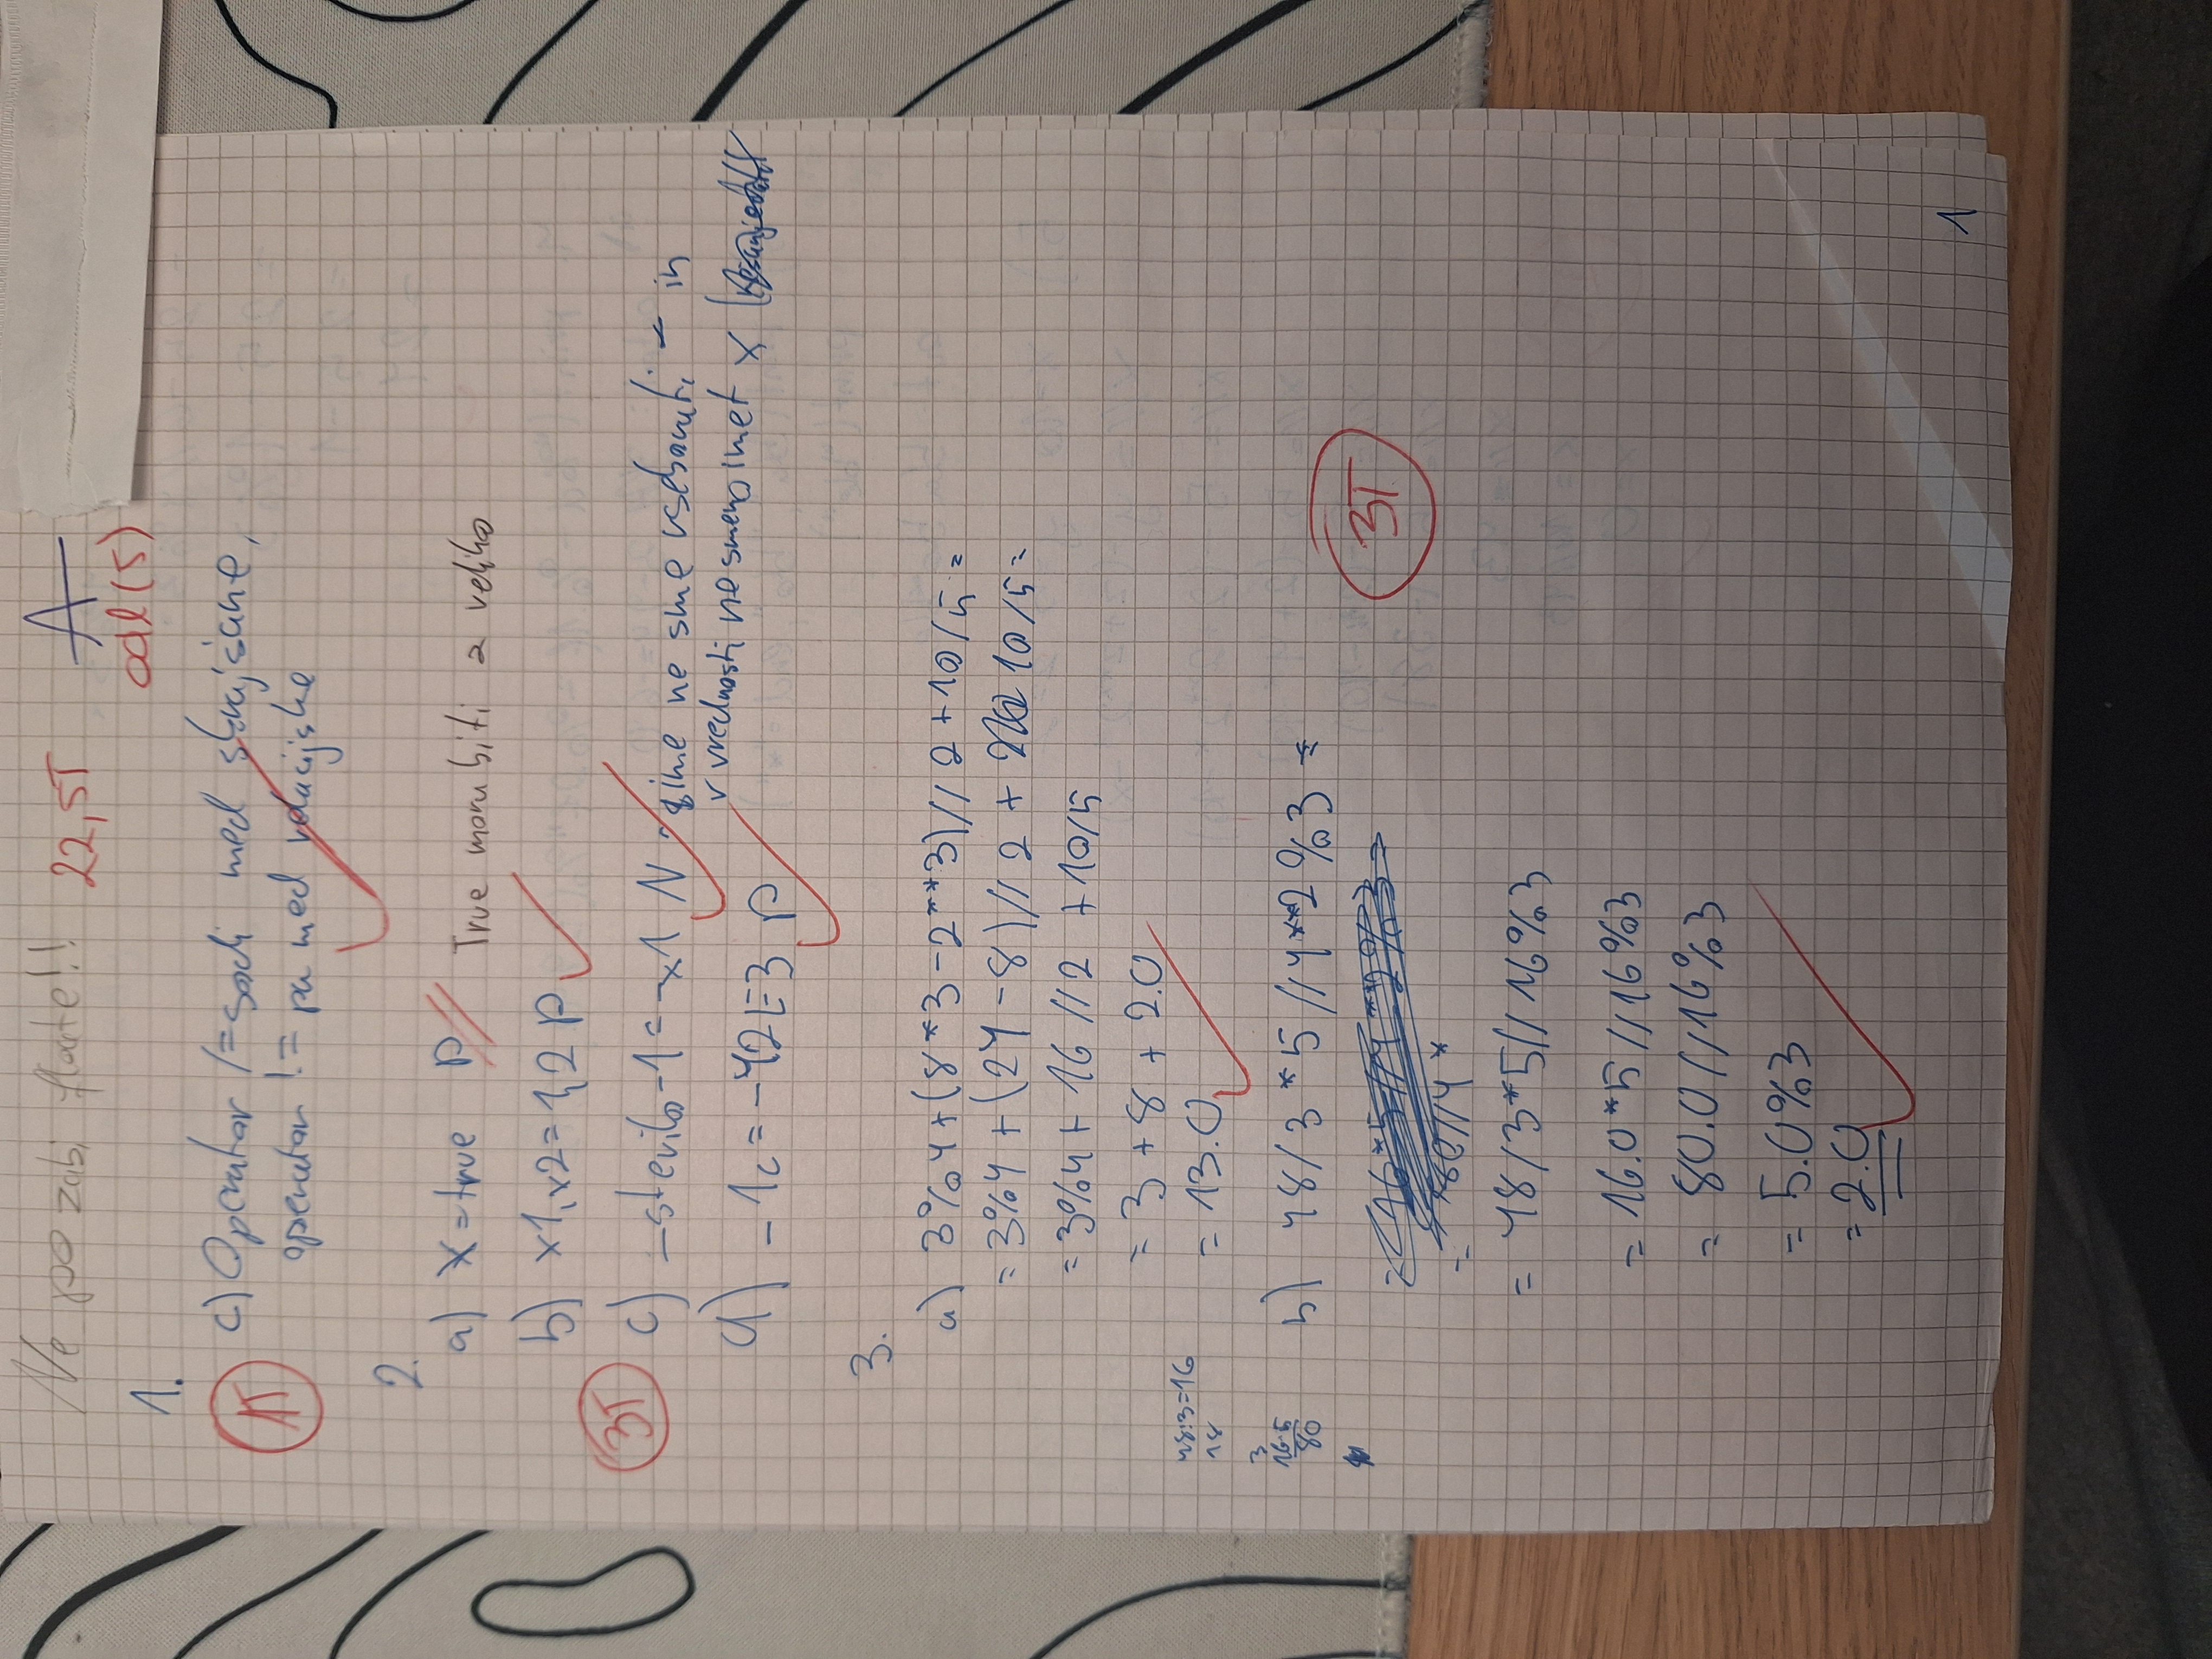 Ne pozabi floate!! 22,5T A
odl(5)
1.
1T
c) Operator /= sodi med skrajšane,
operator != pa med relacijske
2.
a) x=true P True mora biti z veliko
b) x1,x2=1,2 P
3T
c) _stevilo-1=-x1 N - ime ne sme vsebovati - in
v vrednosti ne smemo imet x
d) _1c=-42E3 P
3.
a) 3%4+(8*3-2**3)//2+10/5=
=3%4+(24-8)//2+10/5=
=3%4+16//2+10/5
=3+8+2.0
48:3=16
18
=13.0
3
16·5
80
b) 48/3*5//4**2%3=
3T
=16*5//4**2%3=
=80//4*
=48/3*5//16%3
=16.0*5//16%3
=80.0//16%3
=5.0%3
=2.0
1